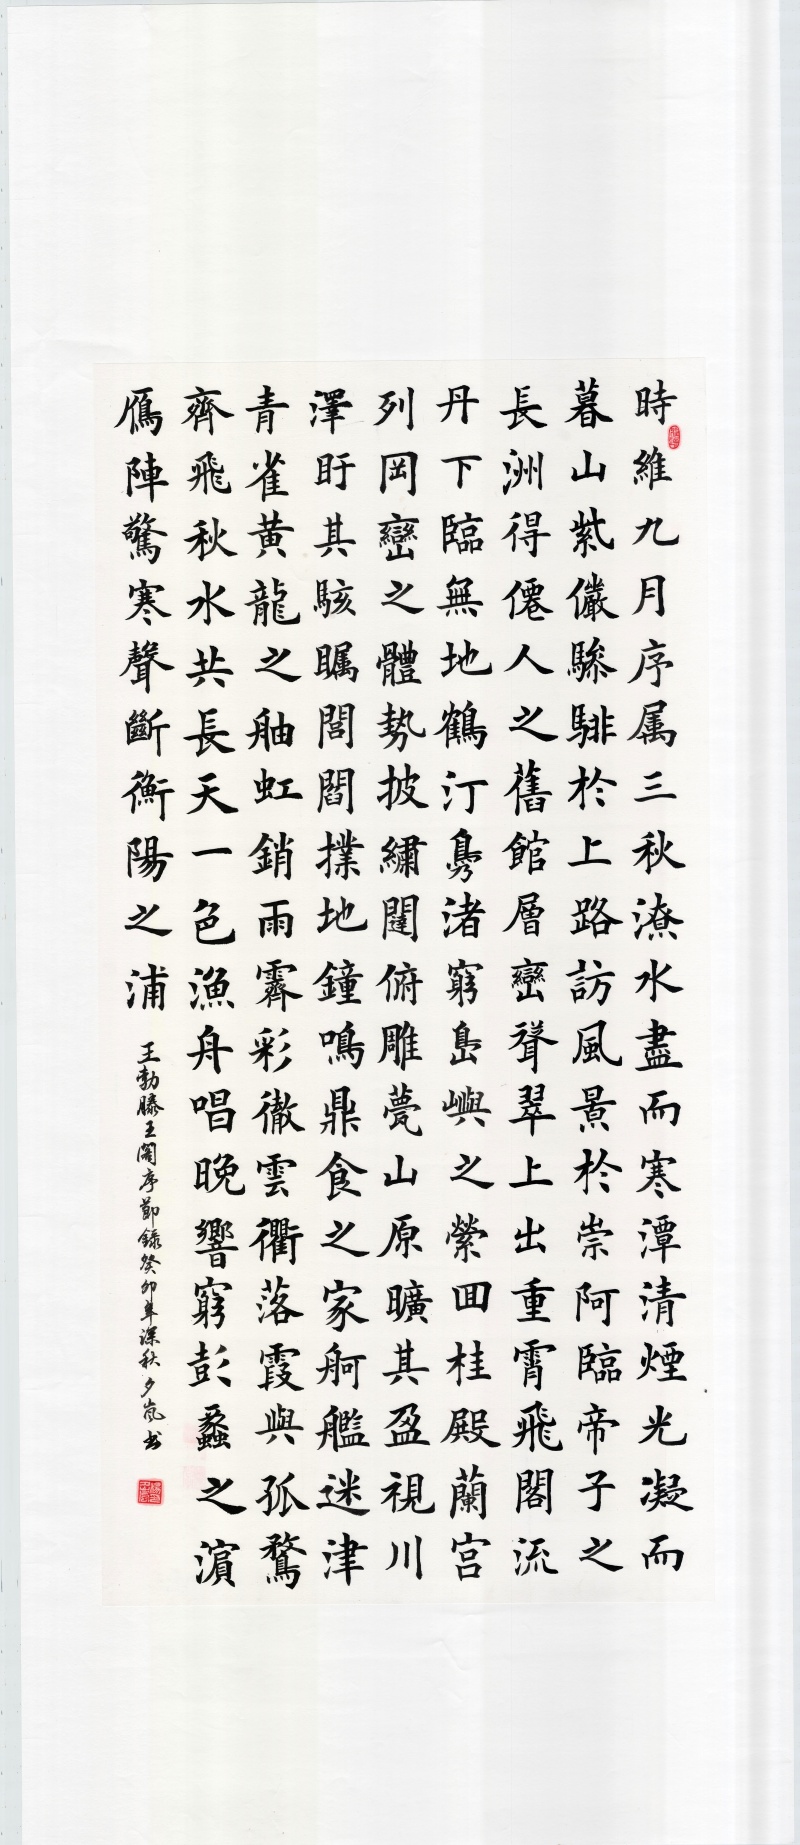 時維九月序属三秋潦水盡而寒潭清煙光凝而
暮山紫儼驂騑於上路訪風景於崇阿臨帝子之
長洲得僊人之舊館層巒聳翠上出重霄飛閣流
丹下臨無地鶴汀鳧渚窮島嶼之縈回桂殿蘭宫
列岡巒之體勢披繡闥俯雕甍山原曠其盈視川
澤盱其駭矚閭閻撲地鐘鳴鼎食之家舸艦迷津
青雀黄龍之舳虹銷雨霽彩徹雲衢落霞與孤鶩
齊飛秋水共長天一色漁舟唱晚響窮彭蠡之濵
鴈陣驚寒聲斷衡陽之浦
王勃滕王閣序節録癸卯年深秋夕岚书